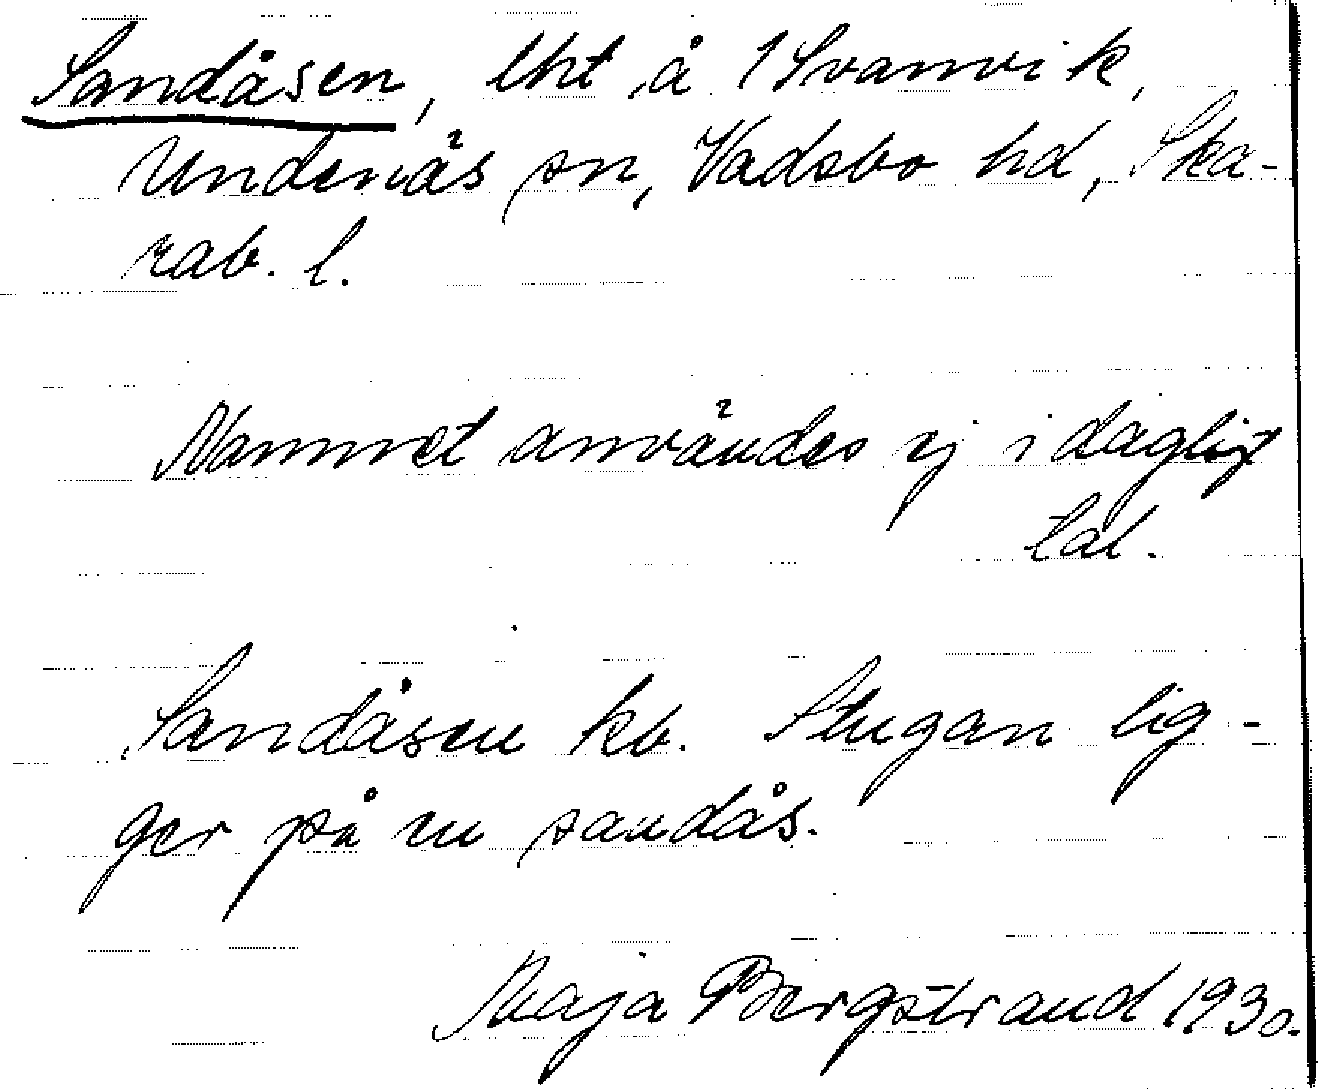 Sandåsen, lht å 1 Svanvik,
Undenäs sn, Vadsbo hd, Ska-
rab. l.
Namnet användes ej i dagligt
tal.
Sandåsen kb. Stugan lig-
ger på en sandås.
Maja Bergstrand 1930.